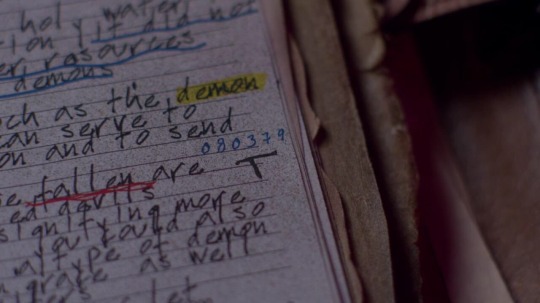 hol water
ion y it did not
er resources
demons
ch as the demon
an serve to
on and to send
080379
e fallen are T
ed devils
signifying more
you found also
type of demon
grave as well
let